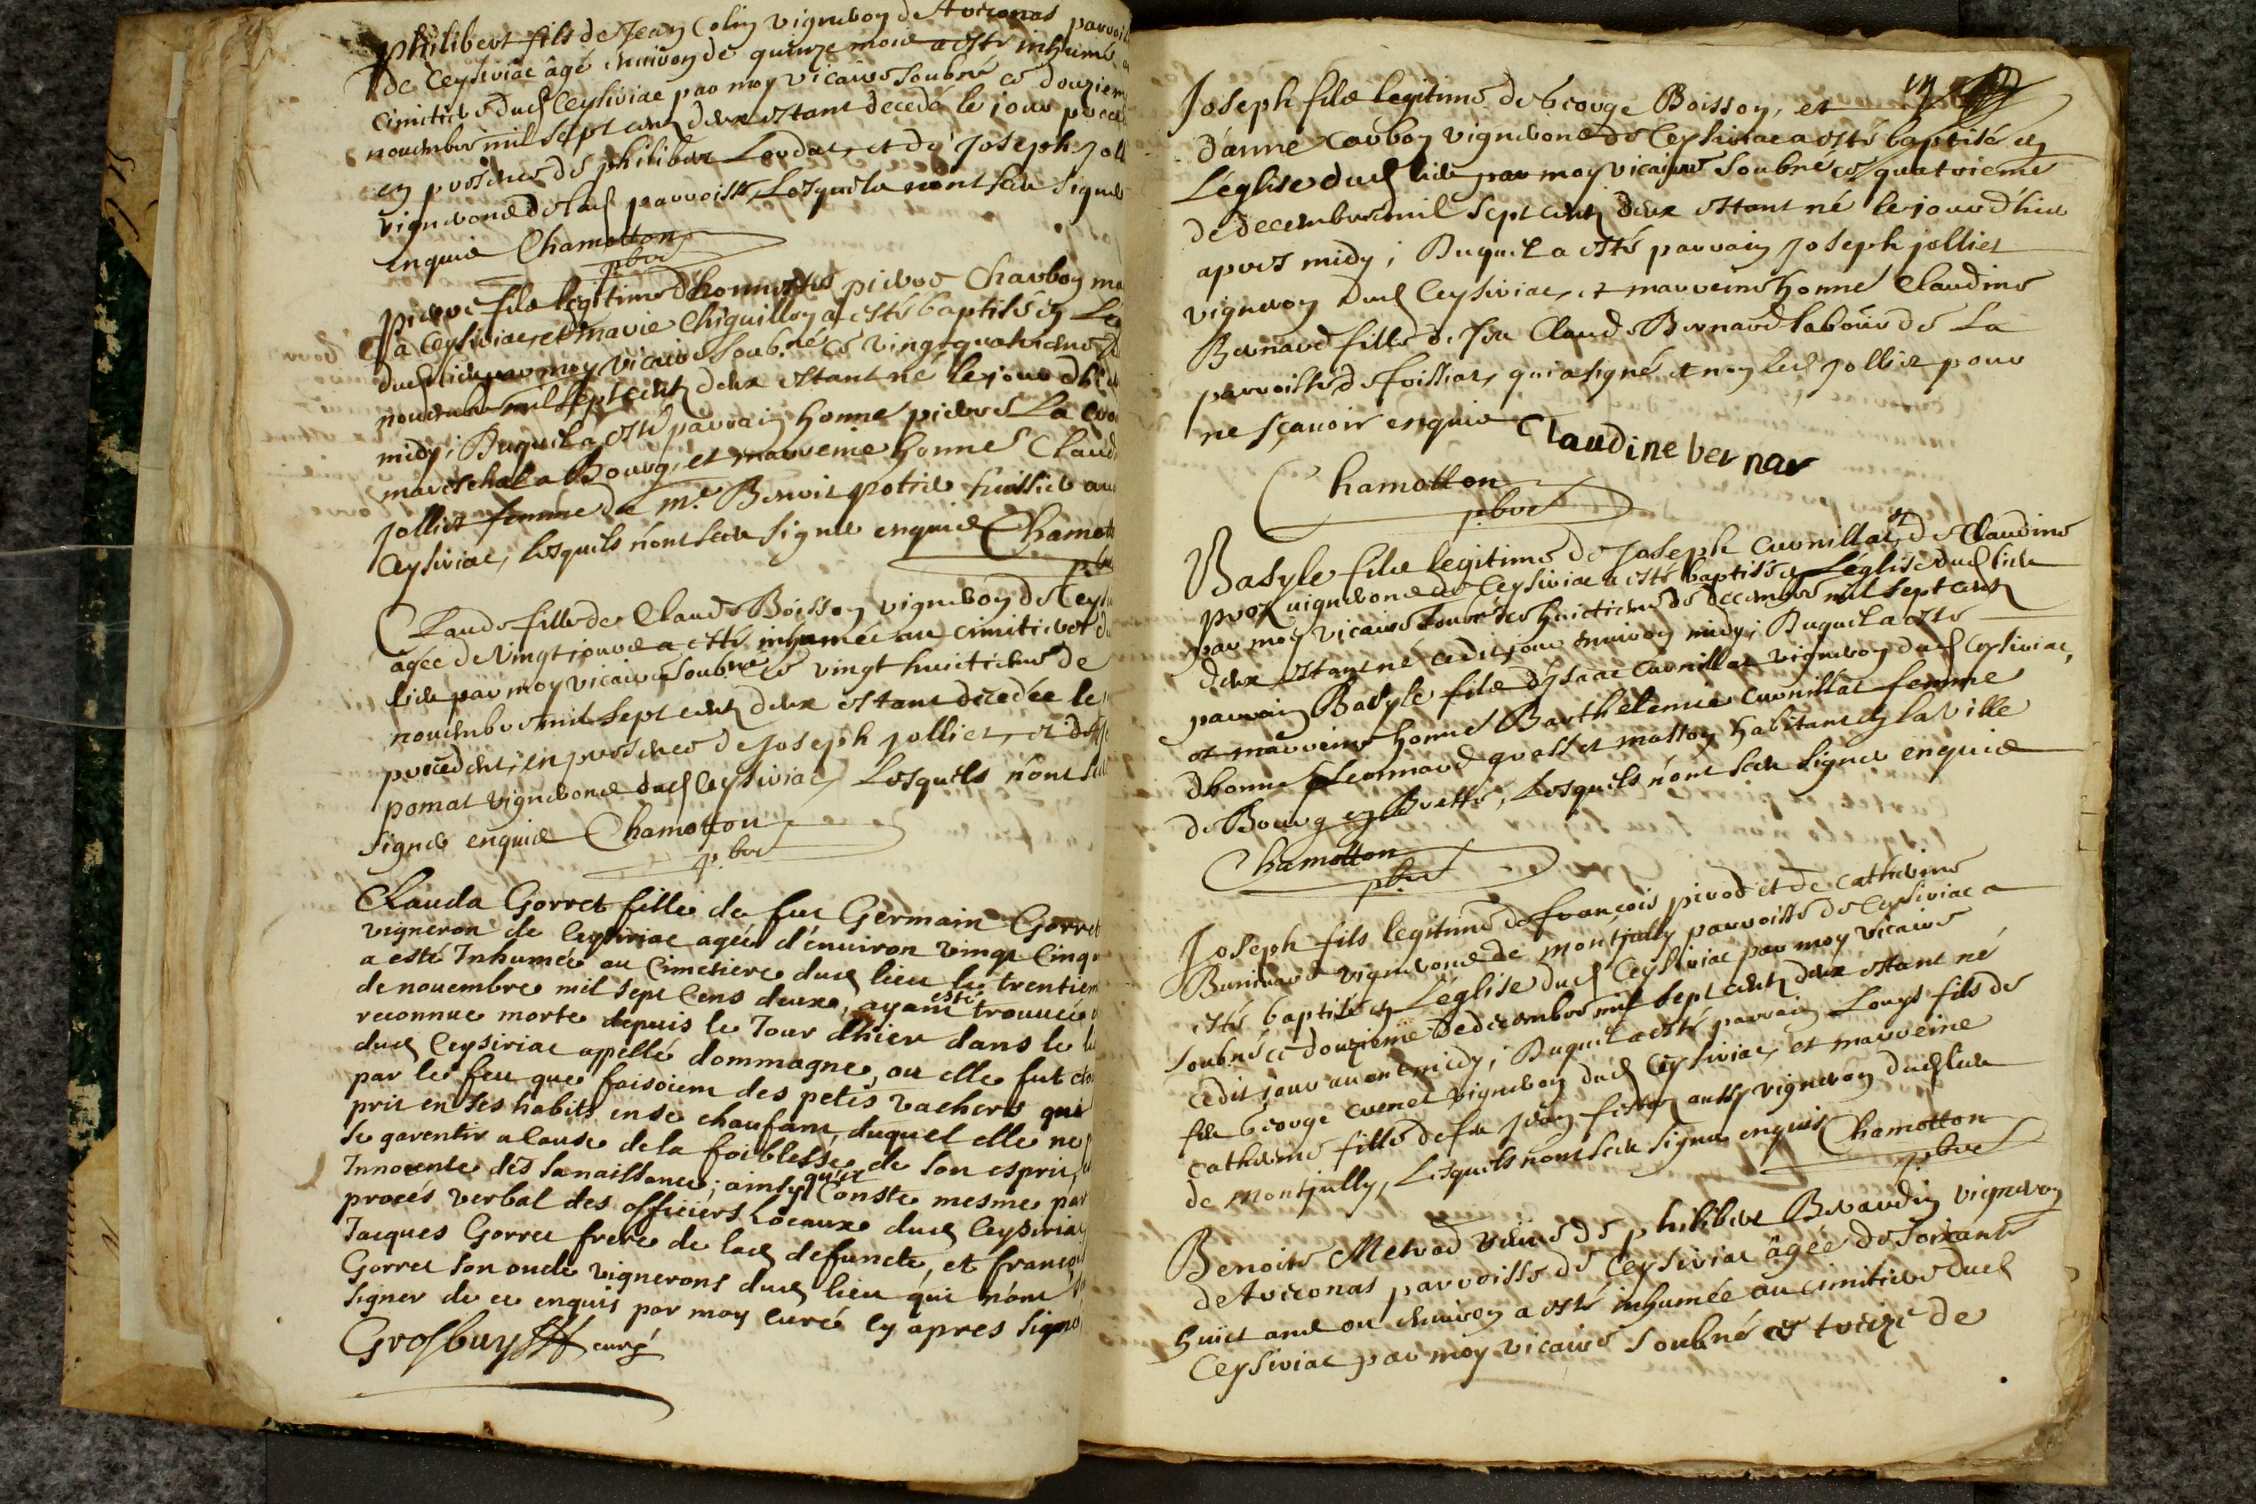 philibert fils de Jean Colin vigneron de Auiconas
de Ceysiriac âgé enuiron de quinze mois a esté inhumé
cimitiere dud Ceysiriac par moy vicaire soubné ce douziem
nouembre mil sept cent deux estant decedé le jour
en presence de philibert et de Joseph
vignerons de lad parroisse, Lesquels n'ont sceu signer
enquis Chamotton
pbre
pierre fils legitime d'honnestes pierre Charbon
a Ceysiriac, et marie Chiguillon a esté baptisé en
dud lieu par moy vicaire soub.né ce vingt quatrieme
nouembre mil sept cent deux estant né le jour d'hier
midy; Duquel a esté parrain honné pierre La
mareschal a Bourg, et marreine honnée
jolliet femme de m.e Benoit potier huissier
Ceysiriac, lesquels n'ont sceu signer enquis
Claude fille de Claude Boisson vigneron de
âgée de vingt jours a esté inhumée au cimitiere
lieu par moy vicaire soubné ce vingt huictieme de
nouembre mil sept cent deux estant decedée le
precedent, en presence de joseph jolliet, et de
pomat vignerons dud Ceysiriac, Lesquels n'ont
signer enquis Chamotton
p.bre
Clauda Gorret fille de feu Germain Gorret
vigneron de Ceysiriac agée d'enuiron vingt Cinq
a esté Inhumée au Cimetiere dud lieu le
de nouembre mil sept Cens deux, ayant esté trouuée
reconnue morte depuis le Jour d'hier dans le
dud Ceysiriac appellé dommagne, ou elle fut
par le feu que faisoient des petis vachers qui
prit en ses habits en se chaufant, duquel elle ne
se garentir a Cause de la foiblesse de son esprit,
Innocente dés sa naissance; ainsy qu'il Conste mesme par
procés verbal des officiers Locaux dud Ceysiriac
Jacques Gorret frere de lad defuncte, et
Gorret son oncle vignerons dud lieu qui n'ont
signer de ce enquis par moy curé cy apres signé
Grosbuy curé
Joseph fils legitime de George Boisson, et
d'anne Carbon vignerons de Ceysiriac a esté baptisé en
L'église dud lieu par moy vicaire soubné ce quatrieme
de decembre mil sept cent deux estant né le jour d'hier
apres midy; Duquel a esté parrain Joseph jolliet
vigneron dud Ceysiriac, et marreine honné Claudine
Bernard fille de feu Claude Bernard labour de La
parroisse de foissiat, qui a signé et non led jolliet pour
ne sçauoir enquis Claudine bernar
Chamotton
p.bre
Basyle fils legitime de Joseph Curnillat, et de Claudine
vignerons de Ceysiriac a esté baptisé en L'église dud lieu
par moy vicaire soub.né ce huictieme de decembre mil sept cent
deux estant né cedit jour enuiron midy; Duquel a esté
parrain Basyle fils d'Isaac Curnillat vigneron dud Ceysiriac,
et marreine honné Barthelemie Curnillat femme
d'honné Leonnard masson habitant en la ville
de Bourg en Bresse, Lesquels n'ont sceu signer enquis
Chamotton
pbre
Joseph fils legitime de françois pirod et de Catherine
vignerons de montjully parroisse de Ceysiriac a
esté baptisé en L'église dud Ceysiriac par moy vicaire
soubné ce douzieme de decembre mil sept cent deux estant né
cedit jour auant midy; Duquel a esté parrain Louys fils de
feu George vigneron dud Ceysiriac, et marreine
Catherine fille de feu Jean aussy vigneron dud lieu
de montjully, Lesquels n'ont sceu signer enquis Chamotton
pbre
Benoite veuue de philibert vigneron
de Auiconas parroisse de Ceysiriac âgée de soixante
huict ans ou enuiron a esté inhumée au cimitiere dud
Ceysiriac par moy vicaire soubné ce treize de